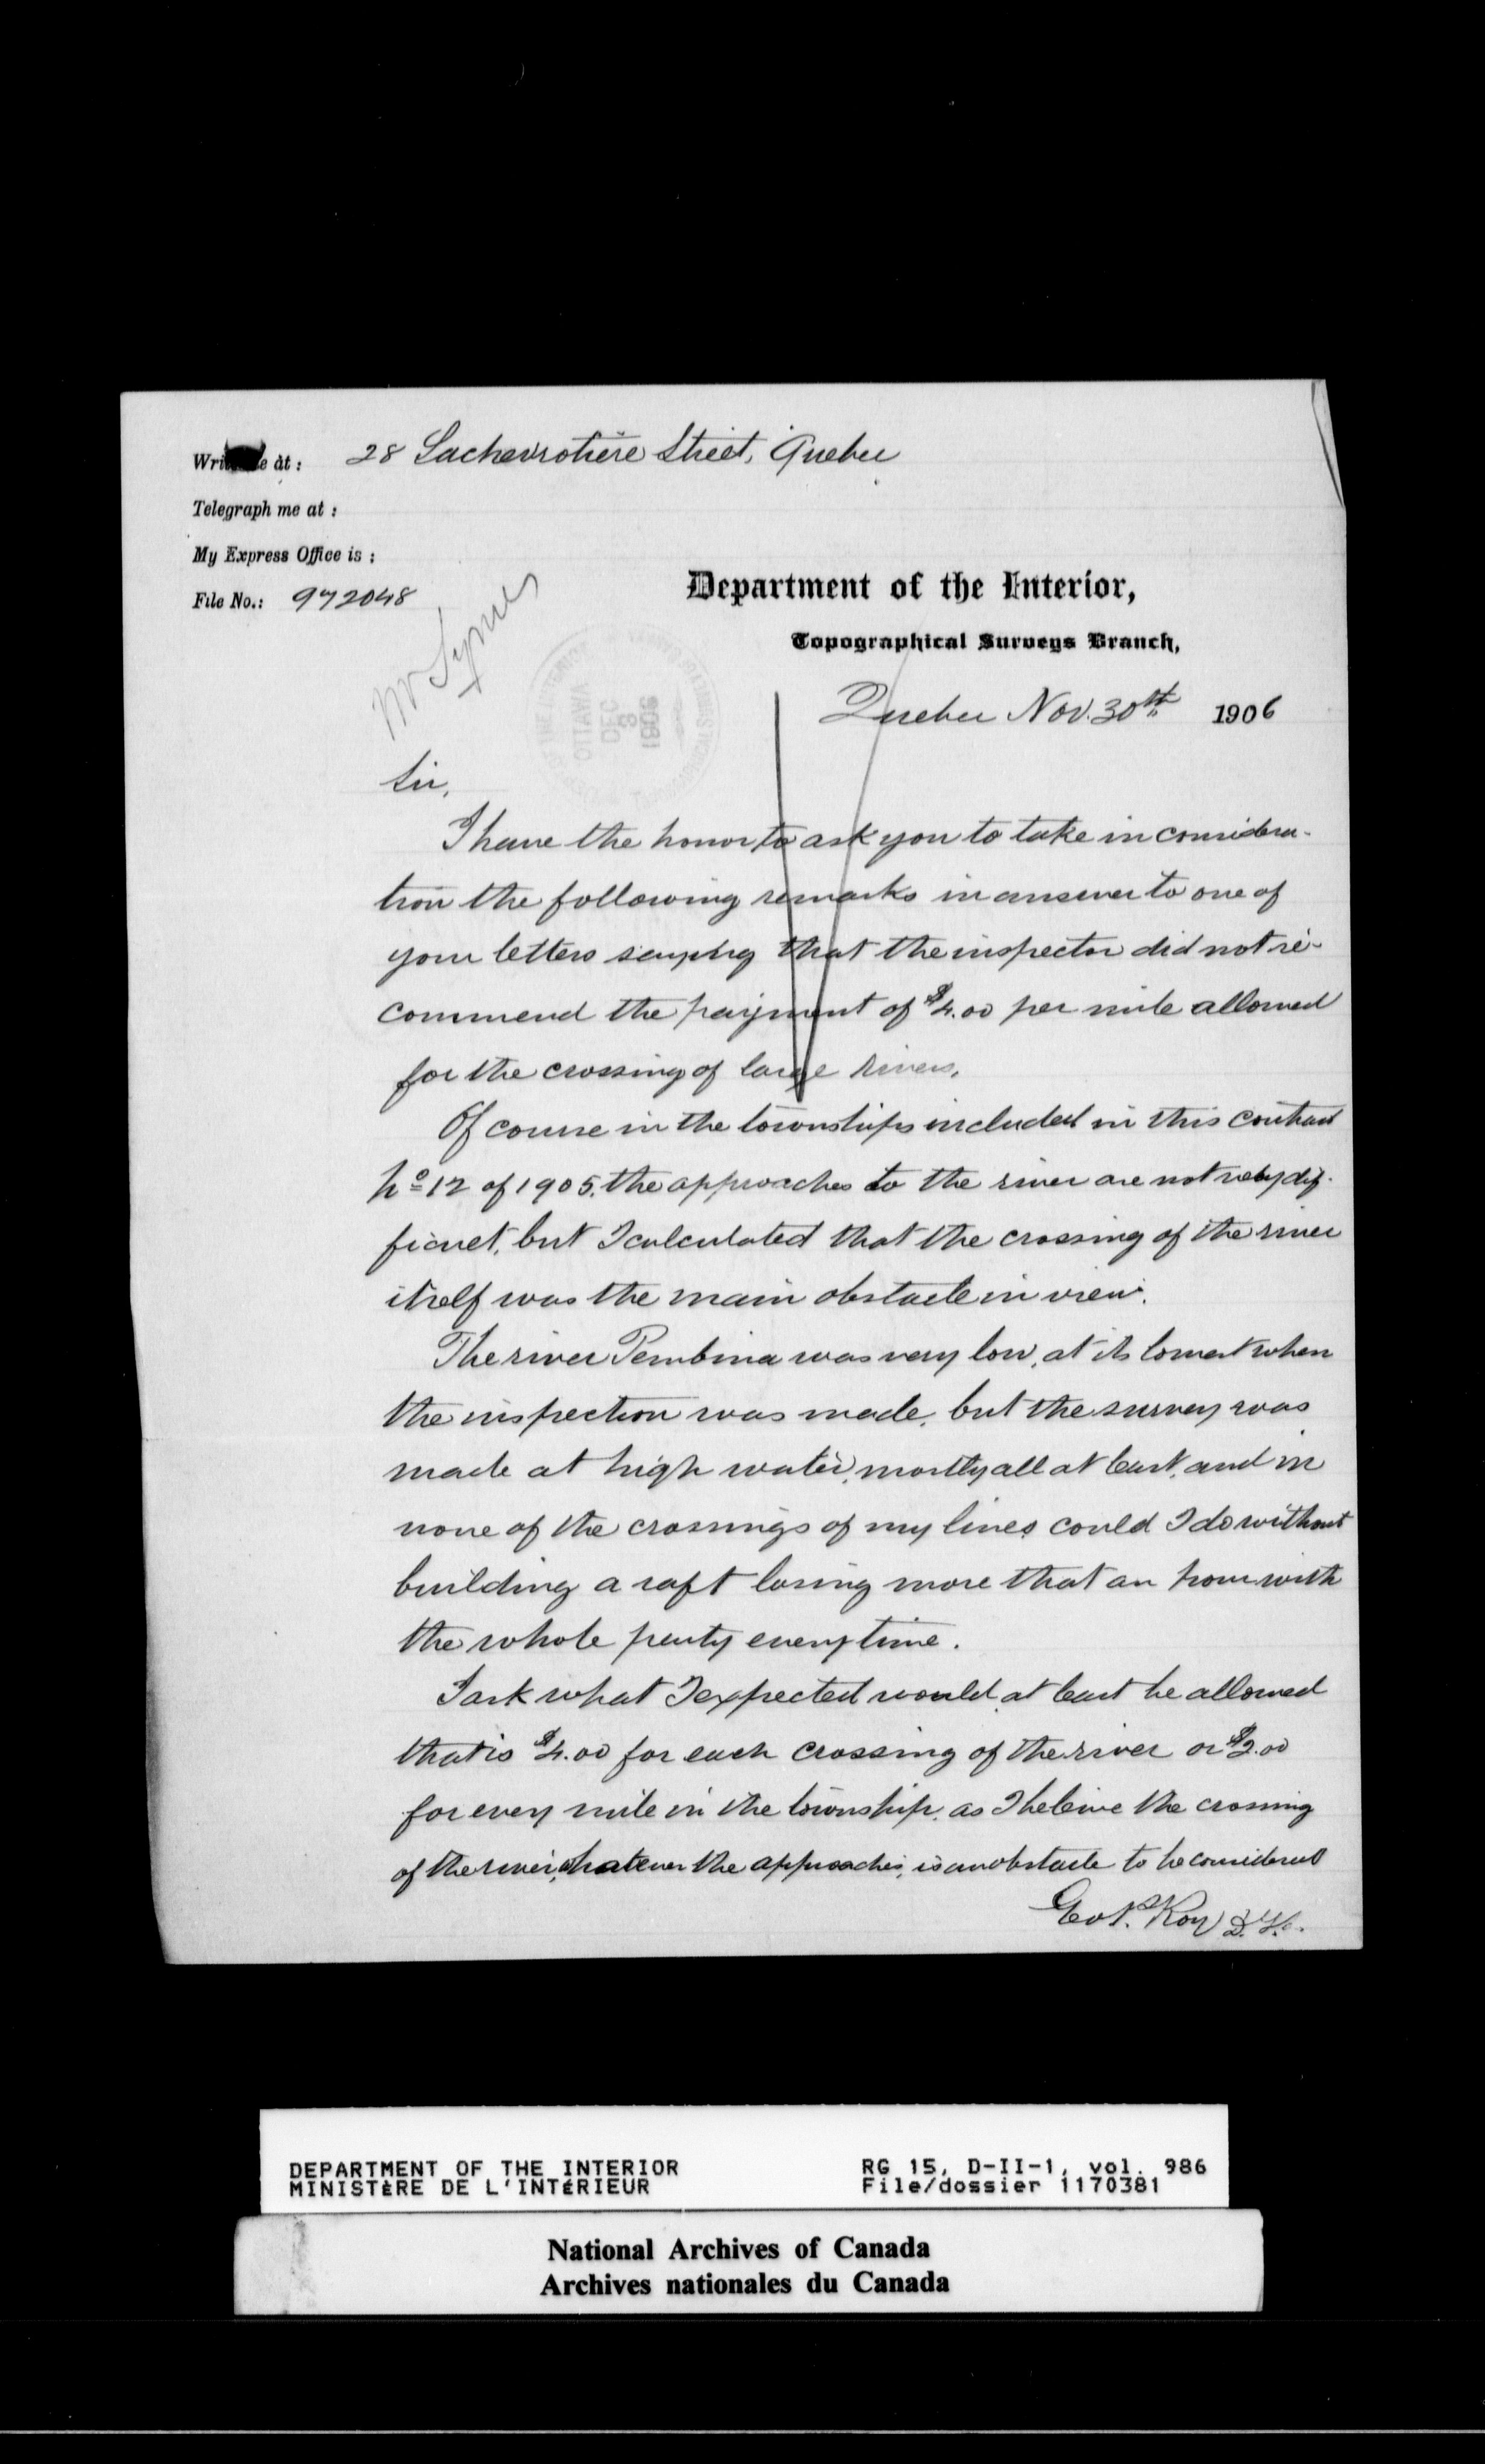 Write me at: 28 Lachevrotière Street, Quebec
Telegraph me at:
My Express Office is:
File No.: 972048
Department of the Interior,
Topographical Surveys Branch,
Quebec Nov. 30th 1906
Sir,
I have the honor to ask you to take in considera-
tion the following remarks in answer to one of
your letters saying that the inspector did not re-
commend the payment of $4.00 per mile allowed
for the crossing of large rivers.
Of course in the townships included in this contract
No 12 of 1905, the approaches to the river are not very dif-
ficult, but I calculated that the crossing of the river
itself was the main obstacle in view.
The river Pembina was very low, at its lowest when
the inspection was made, but the survey was
made at high water, mostly all at least, and in
none of the crossings of my lines could I do without
building a raft losing more that an hour with
the whole party every time.
I ask what I expected would at least be allowed
that is $4.00 for each crossing of the river or $2.00
for every mile in the township, as I beleive the crossing
of the river, whatever the approaches, is an obstacle to be considered
Geo. P. Roy D.L.S.
DEPARTMENT OF THE INTERIOR RG 15, D-II-1, vol. 986
MINISTÈRE DE L'INTÉRIEUR File/dossier 1170381
National Archives of Canada
Archives nationales du Canada